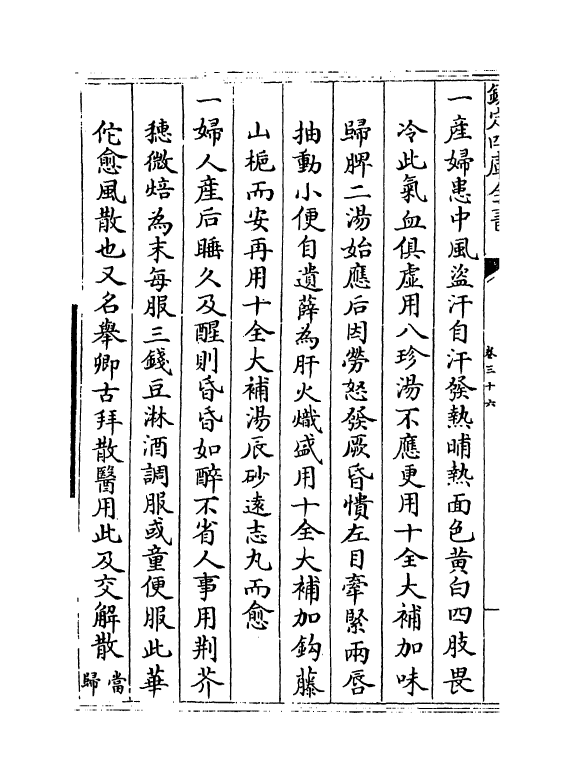 欽定四庫全書
卷三十六
一產婦患中風盜汗自汗發熱晡熱面色黄白四肢畏
冷此氣血俱虛用八珍湯不應更用十全大補加味
歸脾二湯始應后因勞怒發厥昏憒左目牽緊兩唇
抽動小便自遺薛為肝火熾盛用十全大補加鈎藤
山梔而安再用十全大補湯辰砂逺志丸而愈
一婦人產后睡久及醒則昏昏如醉不省人事用荆芥
穗微焙為末每服三錢豆淋酒調服或童便服此華
佗愈風散也又名舉卿古拜散醫用此及交解散當歸